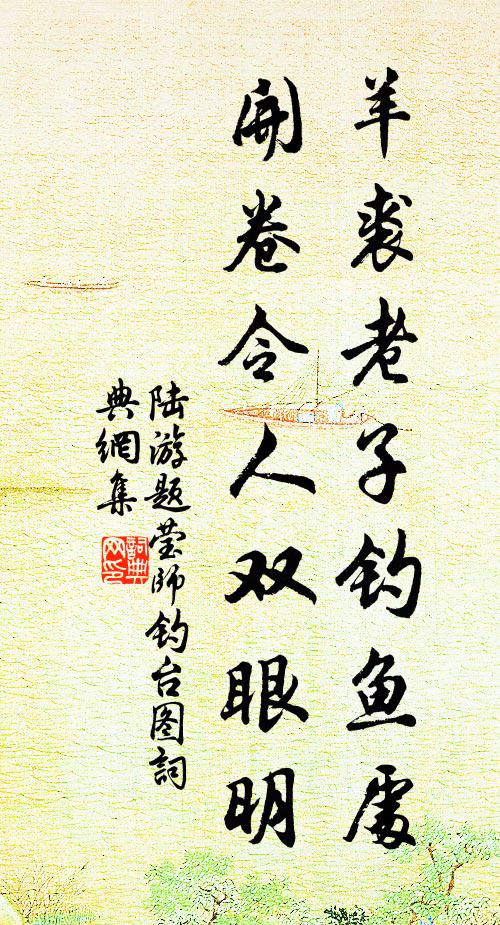 羊裘老子钓鱼處
開卷令人双眼明
陆游题莹师钓台图詞
典網集
詞典
网印